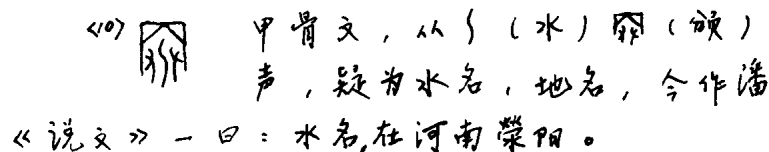 <10> 甲骨文，从（水）（颁）
声，疑为水名，地名，今作潘
《说文》一曰：水名，在河南荥阳。